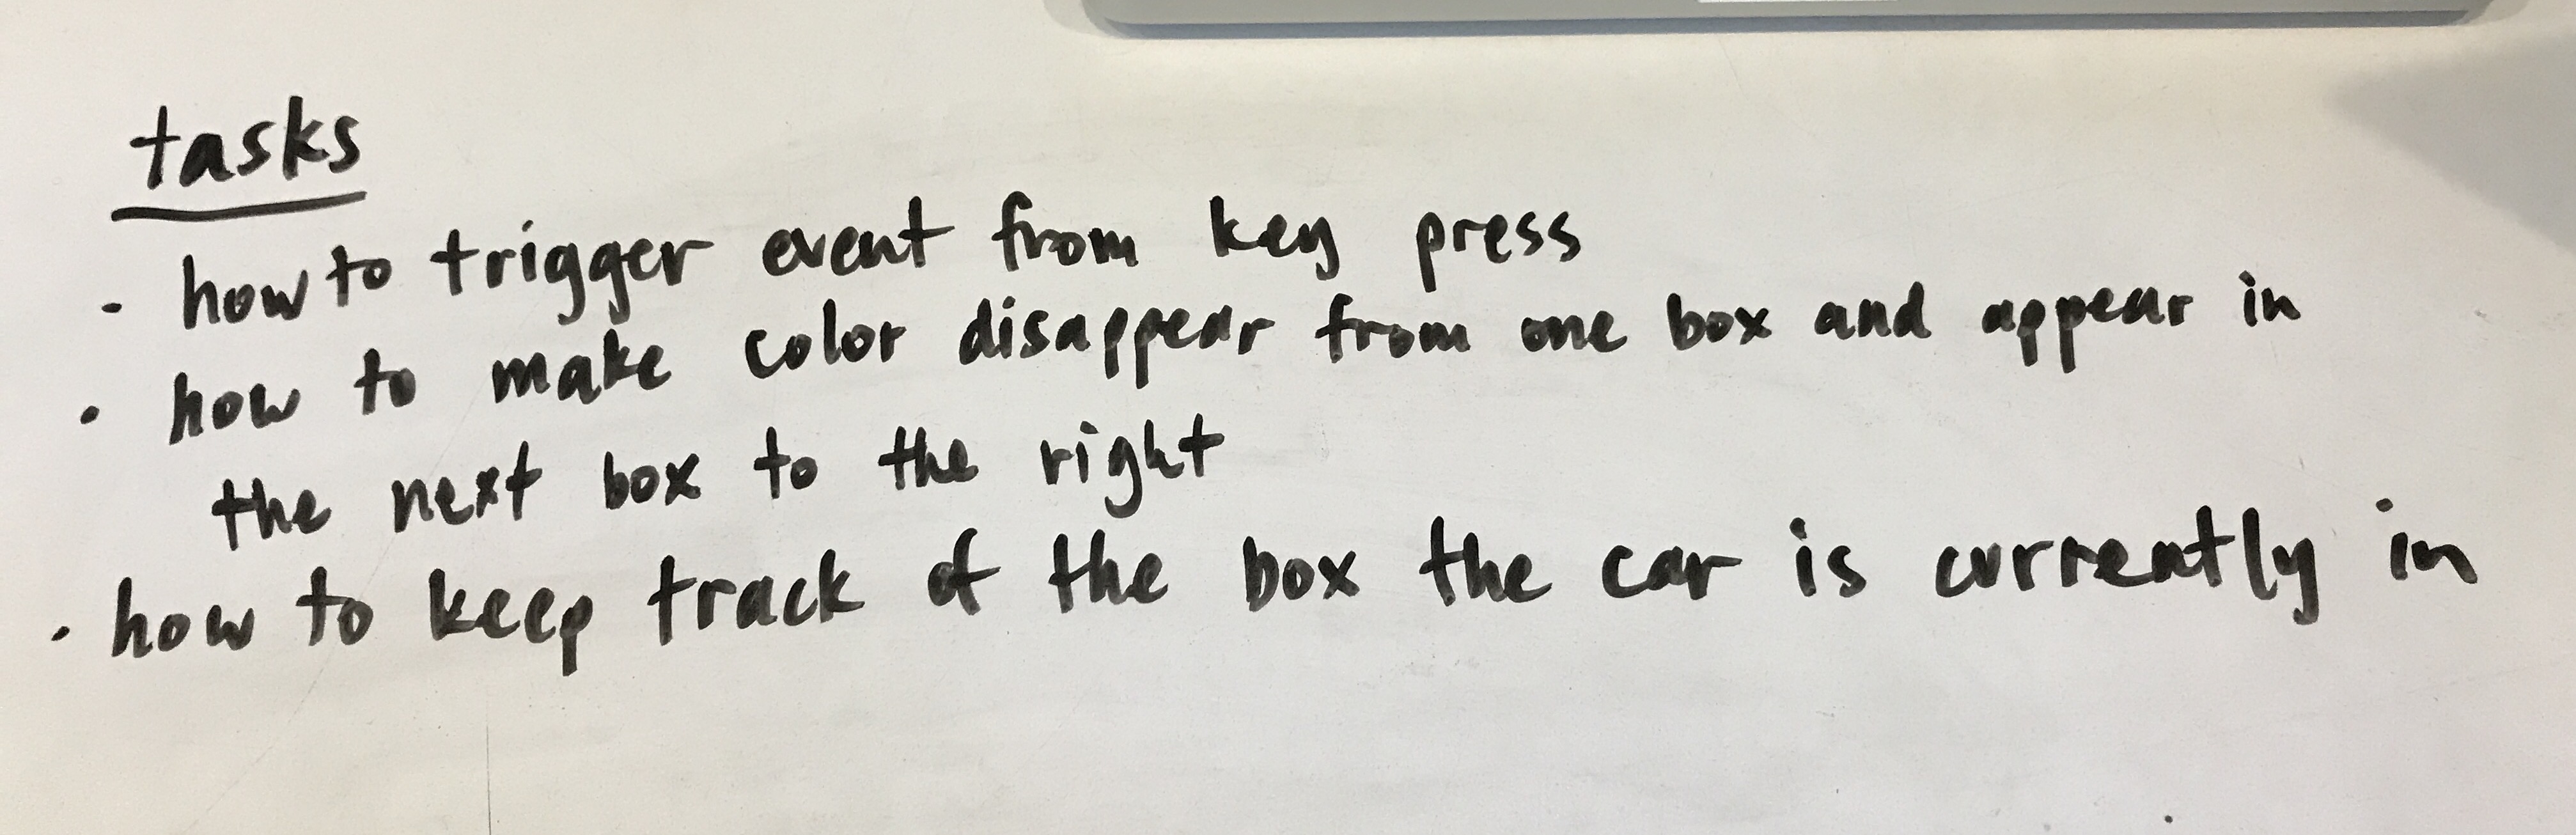 tasks
- how to trigger event from key press
· how to make color disappear from one box and appear in
the next box to the right
· how to keep track of the box the car is currently in